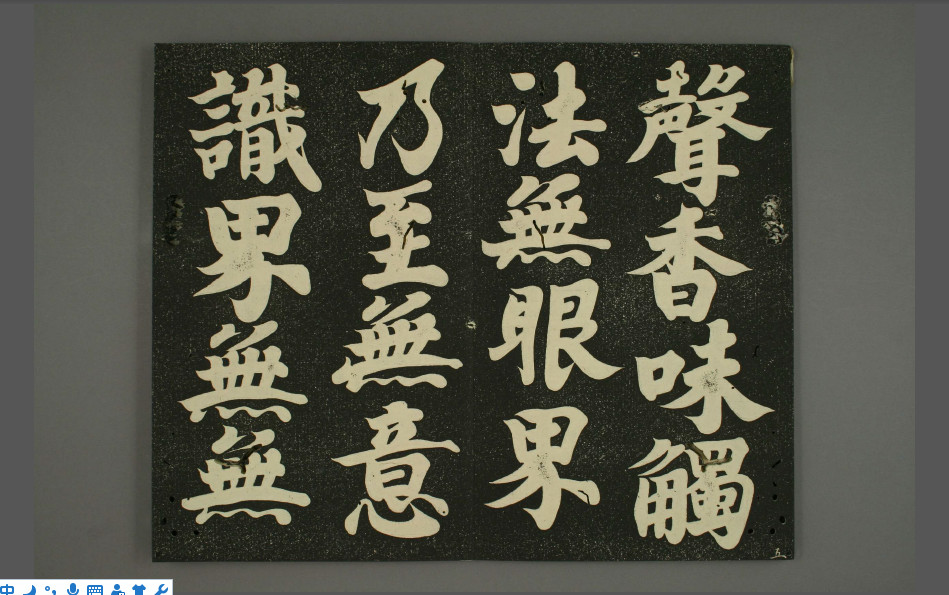 聲香味觸
法無眼界
乃至無意
識界無無
五
中